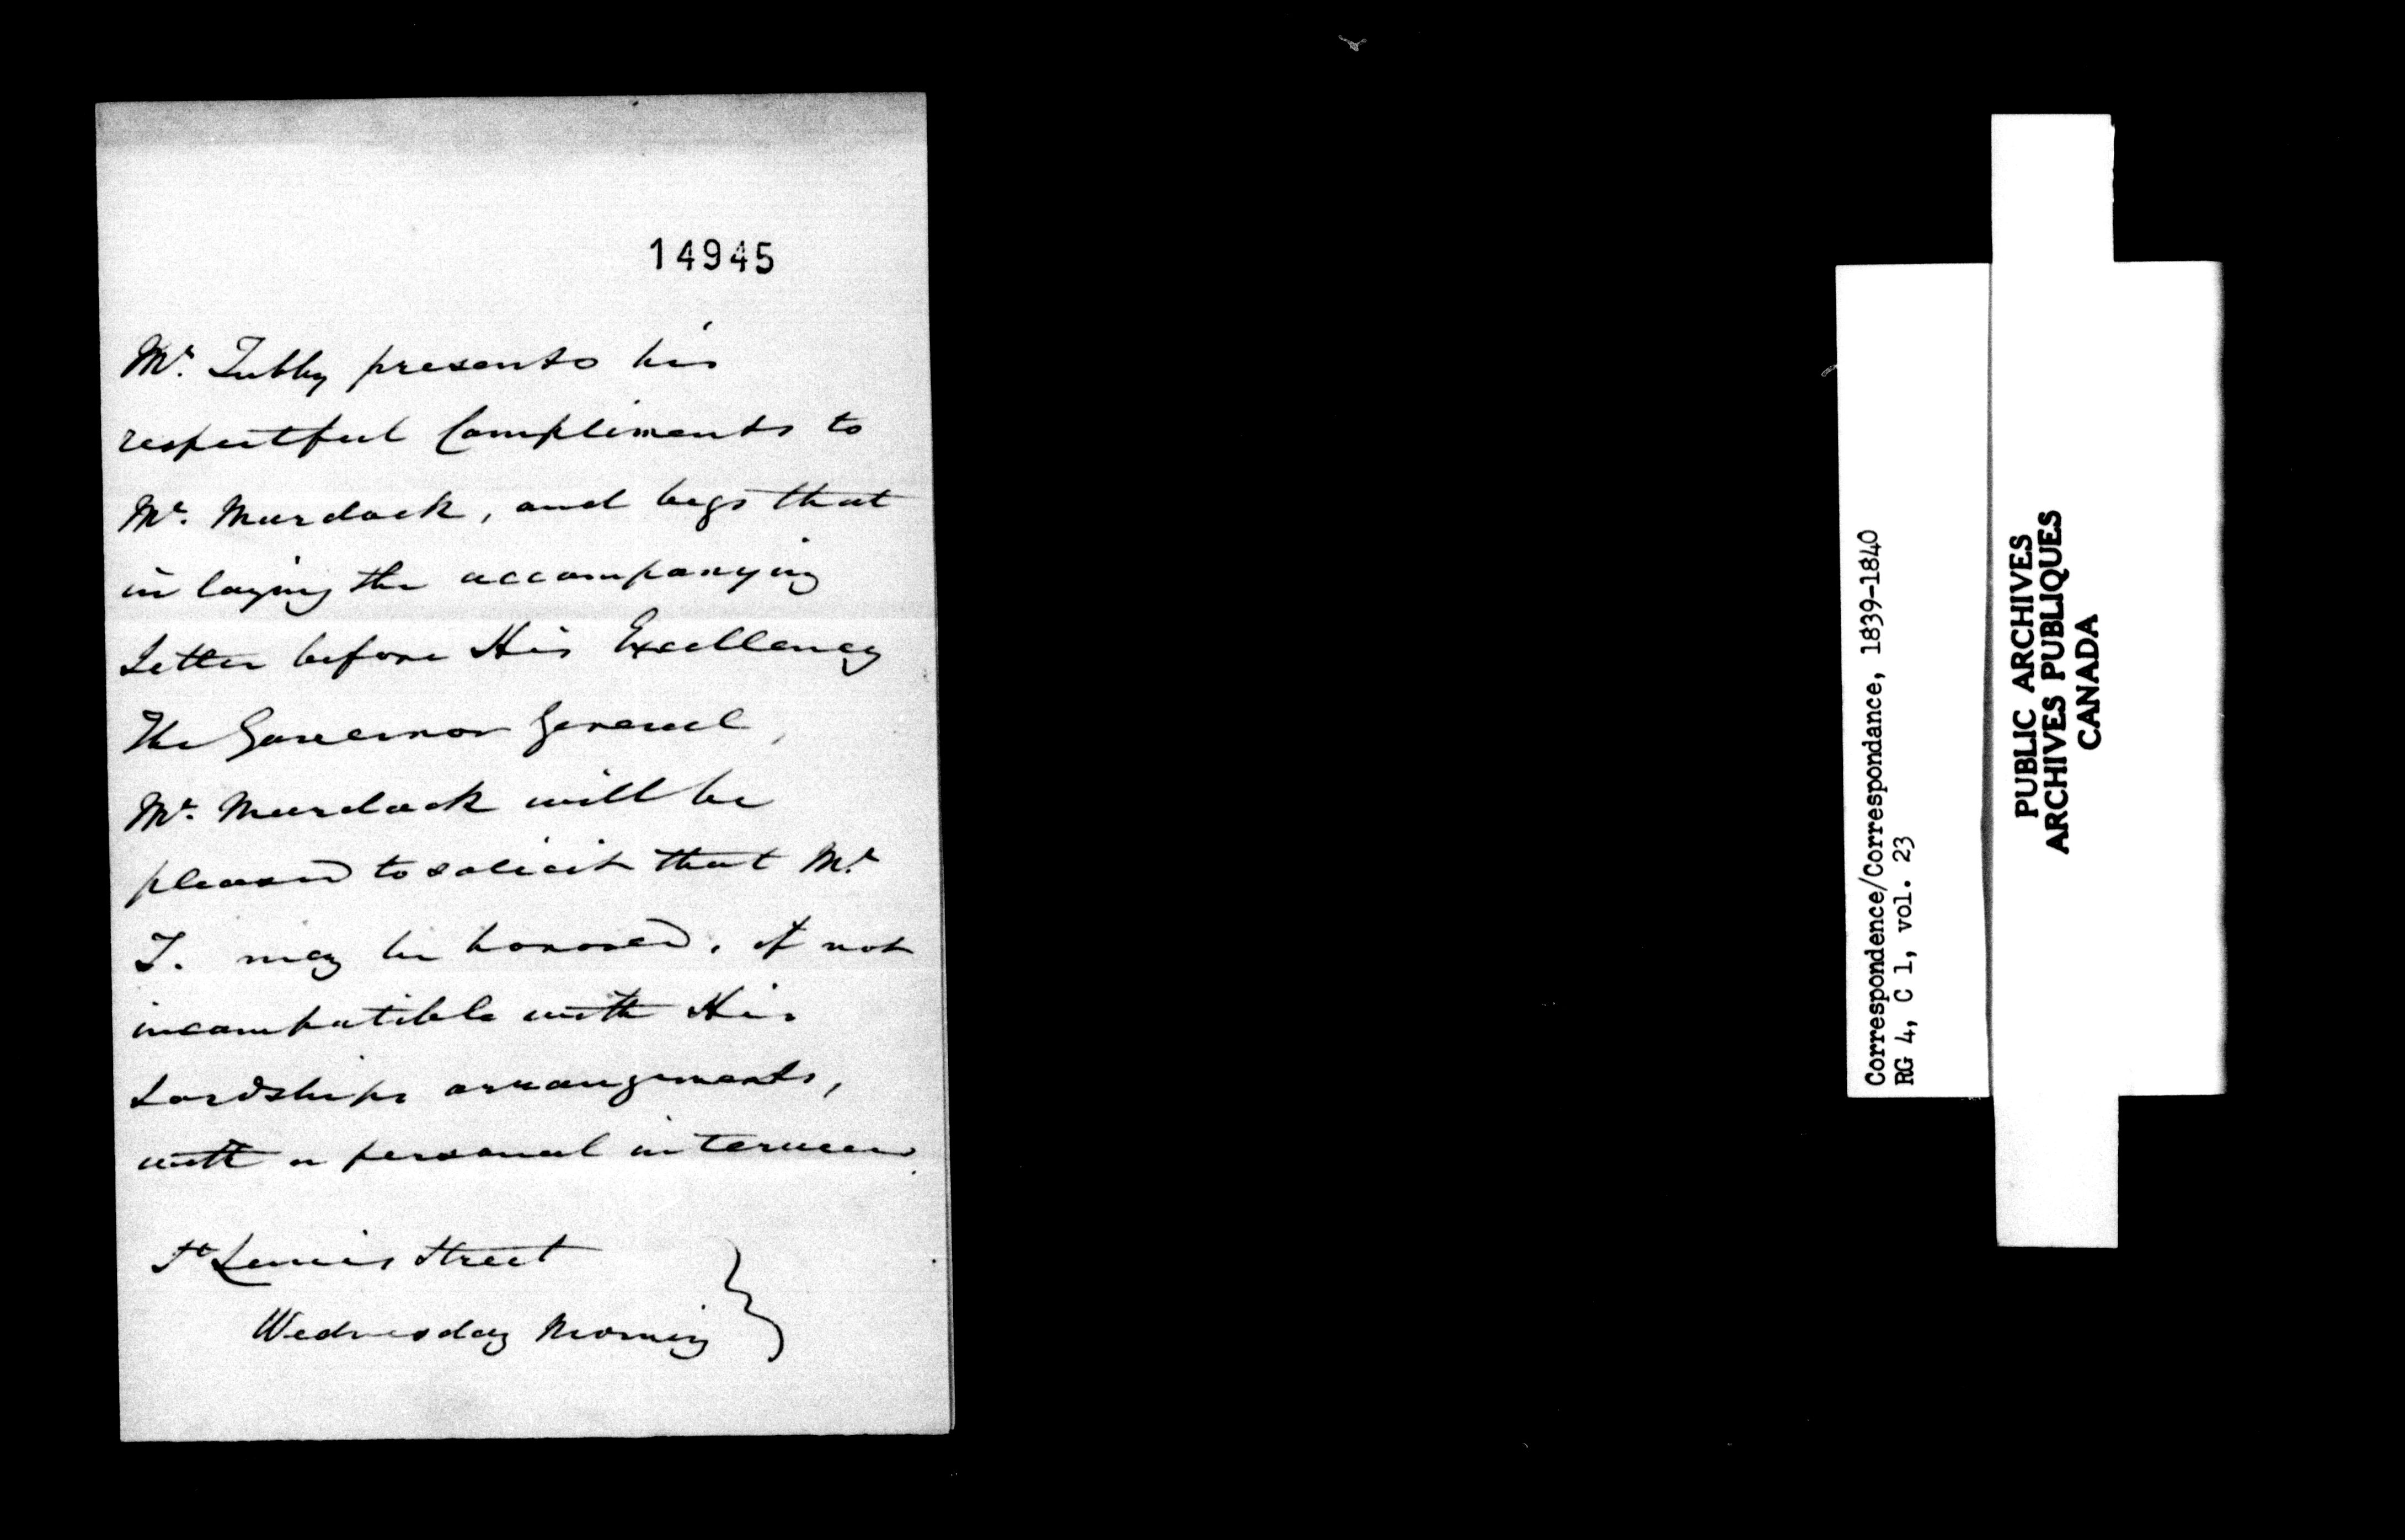 14945
Mr. Tubby presents his
respectful Compliments to
Mr. Murdock, and begs that
in laying the accompanying
Letter before His Excellency
The Governor General,
Mr. Murdock will be
pleased to solicit that Mr.
T. may be honored, if not
incompatible with His
Lordships arrangements,
with a personal interview.
St Lewis Street
Wednesday Morning
Correspondence/Correspondance, 1839-1840
RG 4, C 1, vol. 23
PUBLIC ARCHIVES
ARCHIVES PUBLIQUES
CANADA